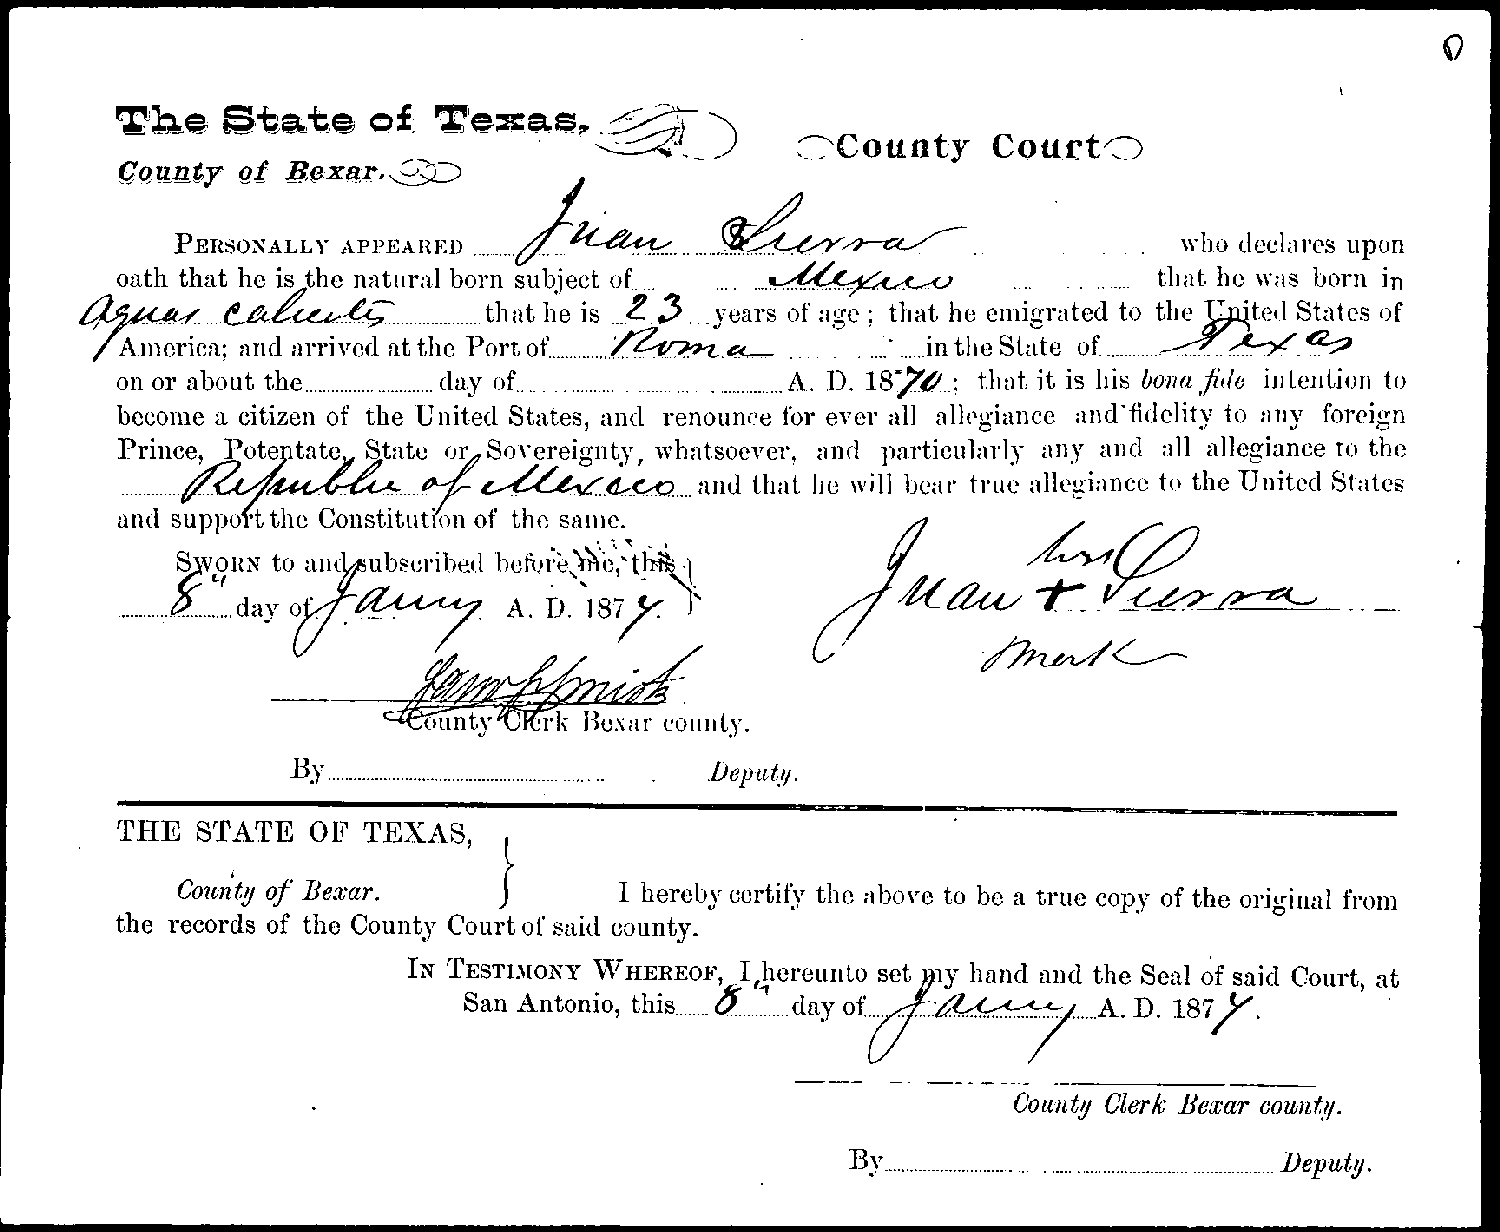 The State of Texas,
County Court
County of Bexar.
PERSONALLY APPEARED Juan Sierra who declares upon
oath that he is the natural born subject of Mexico that he was born in
Aguas calientes that he is 23 years of age; that he emigrated to the United States of
America; and arrived at the Port of Roma in the State of Texas
on or about the day of A. D. 1870; that it is his bona fide intention to
become a citizen of the United States, and renounce for ever all allegiance and fidelity to any foreign
Prince, Potentate, State or Sovereignty, whatsoever, and particularly any and all allegiance to the
Republic of Mexico and that he will bear true allegiance to the United States
and support the Constitution of the same.
SWORN to and subscribed before me, this
8" day of Jany A. D. 1874.
his
Juan + Sierra
mark
Sam S Smith
County Clerk Bexar county.
By Deputy.
THE STATE OF TEXAS,
County of Bexar.
I hereby certify the above to be a true copy of the original from
the records of the County Court of said county.
IN TESTIMONY WHEREOF, I hereunto set my hand and the Seal of said Court, at
San Antonio, this 8" day of Jany A. D. 1874.
County Clerk Bexar county.
By Deputy.